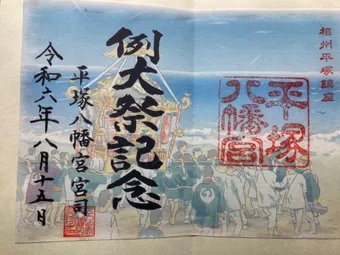 相州平塚鎮座
平塚
八幡宮
例大祭記念
平塚八幡宮宮司
令和六年八月十五日